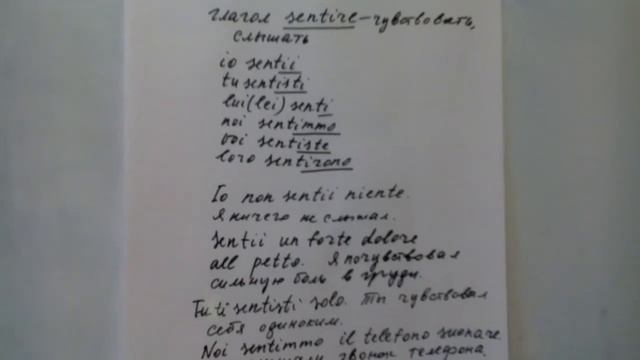 глагол sentire – чувствовать,
слышать
io sentii
tu sentisti
lui(lei) sentì
noi sentimmo
voi sentiste
loro sentirono
Io non sentii niente.
Я ничего не слышал.
Sentii un forte dolore
all petto. Я почувствовал
сильную боль в груди.
Tu ti sentisti solo. Ты чувствовал
себя одиноким.
Noi sentimmo il telefono suonare
звонок телефона